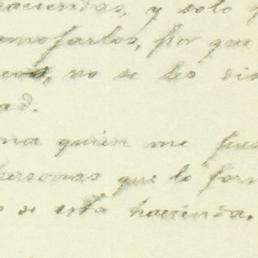 haciendas, y solo
por que
no se les dis
ad.
na quien me pue
personas que lo for
s de esta hacienda.